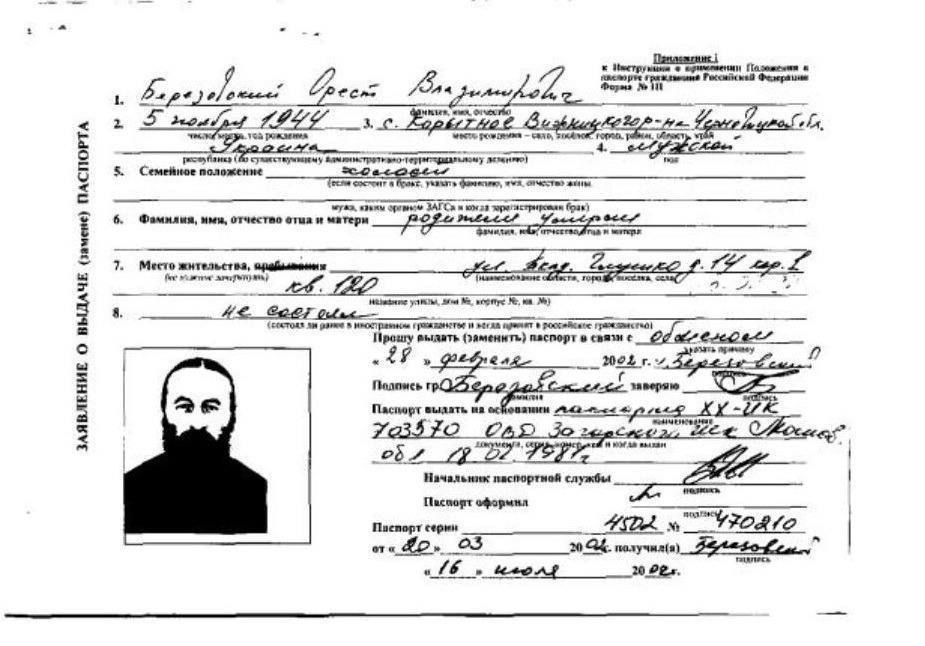 Приложение 1
к Инструкции о применении Положения о
паспорте гражданина Российской Федерации
Форма № 1П
ЗАЯВЛЕНИЕ О ВЫДАЧЕ (замене) ПАСПОРТА
1. Березовский Орест Владимирович
фамилия, имя, отчество
2. 5 ноября 1944 3. с. Корытное Вижницкого р-на Черновицкой обл.
число, месяц, год рождения место рождения – село, посёлок, город, район, область, край
Украина 4. Мужской
республика (по существующему административно-территориальному делению) пол
5. Семейное положение холост
(если состоит в браке, указать фамилию, имя, отчество жены,
мужа, каким органом ЗАГСа и когда зарегистрирован брак)
6. Фамилия, имя, отчество отца и матери родители умерли
фамилия, имя, отчество отца и матери
7. Место жительства, пребывания ул. Глушко д. 14 кор. 1
(ненужное зачеркнуть) (наименование области, города, поселка, села,
кв. 120
название улицы, дом №, корпус №, кв. №)
8. не состоял
(состоял ли ранее в иностранном гражданстве и когда принят в российское гражданство)
Прошу выдать (заменить) паспорт в связи с обменом
указать причину
« 28 » февраля 2002 г. Березовский
подпись
Подпись гр. Березовский заверяю
фамилия подпись
Паспорт выдать на основании паспорта XX-ИК
наименование
703570 ОВД Загорского
документа, серия, номер, кем и когда выдан
обл 18 02 1981г
Начальник паспортной службы
подпись
Паспорт оформил
подпись
Паспорт серии 4502 № 470210
от « 20 » 03 2002г. получил(а) Березовский
подпись
« 16 » июля 2002г.